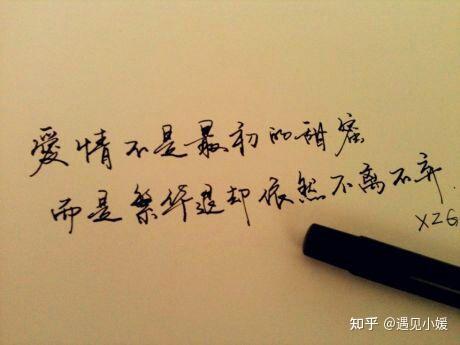 愛情不是最初的甜蜜
而是繁华退却依然不离不弃.
XZG
知乎 @遇见小媛